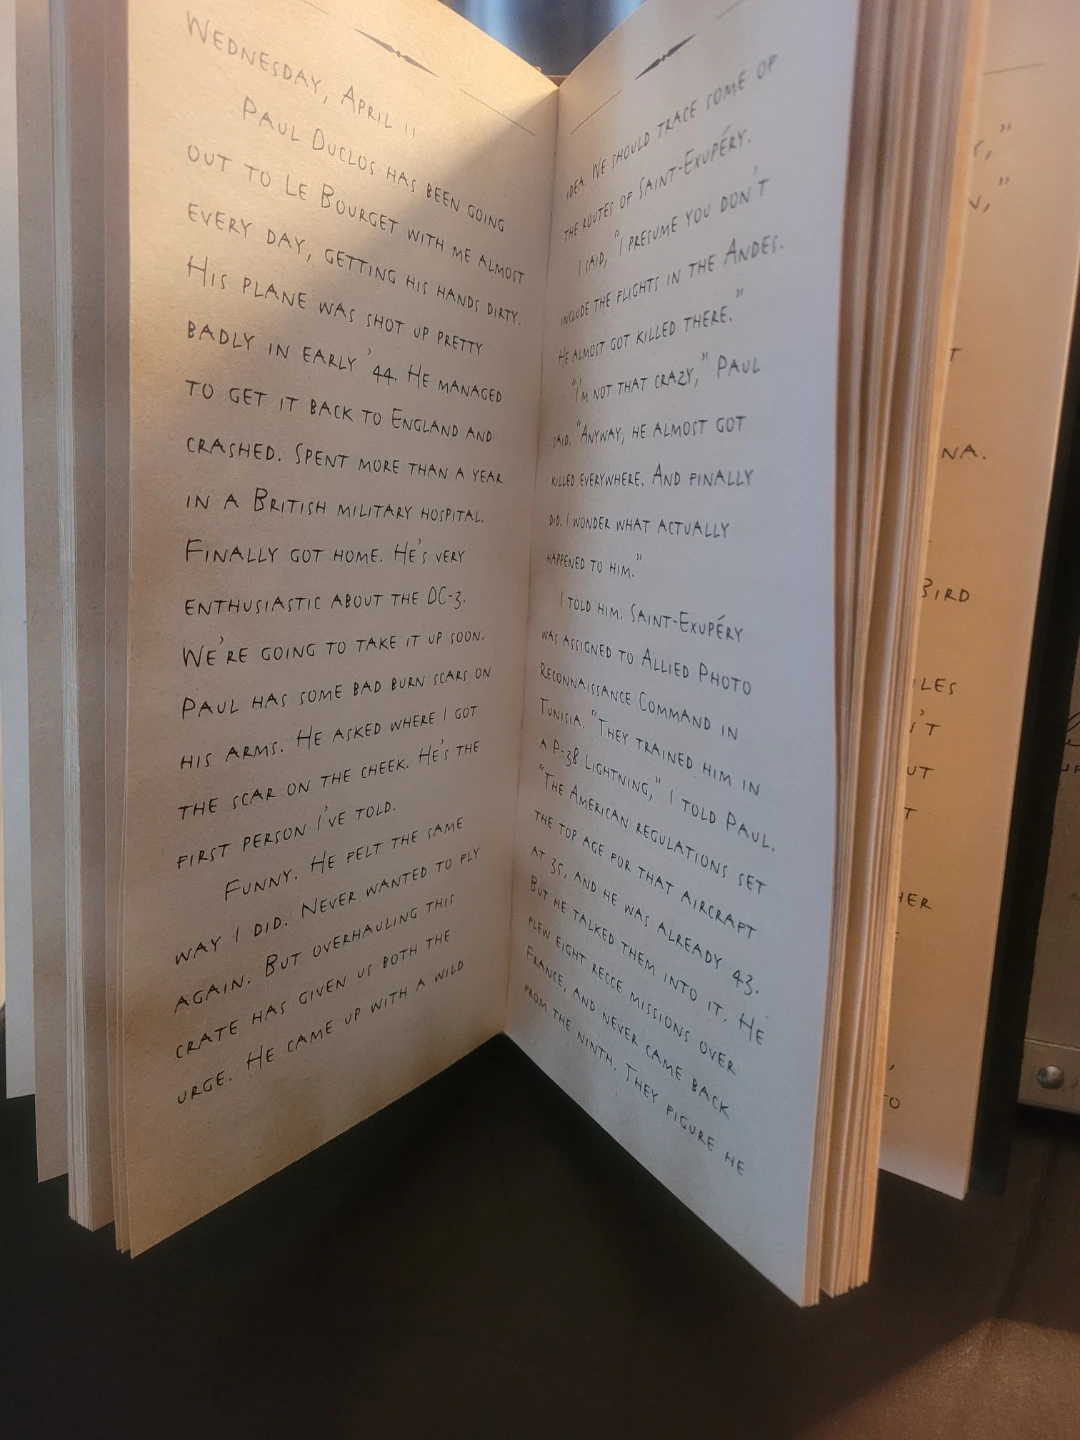 WEDNESDAY, APRIL 11
PAUL DUCLOS HAS BEEN GOING
OUT TO LE BOURGET WITH ME ALMOST
EVERY DAY, GETTING HIS HANDS DIRTY.
HIS PLANE WAS SHOT UP PRETTY
BADLY IN EARLY '44. HE MANAGED
TO GET IT BACK TO ENGLAND AND
CRASHED. SPENT MORE THAN A YEAR
IN A BRITISH MILITARY HOSPITAL.
FINALLY GOT HOME. HE'S VERY
ENTHUSIASTIC ABOUT THE DC-3.
WE'RE GOING TO TAKE IT UP SOON.
PAUL HAS SOME BAD BURN SCARS ON
HIS ARMS. HE ASKED WHERE I GOT
THE SCAR ON THE CHEEK. HE'S THE
FIRST PERSON I'VE TOLD.
FUNNY. HE FELT THE SAME
WAY I DID. NEVER WANTED TO FLY
AGAIN. BUT OVERHAULING THIS
CRATE HAS GIVEN US BOTH THE
URGE. HE CAME UP WITH A WILD
IDEA. WE SHOULD TRACE SOME OF
THE ROUTES OF SAINT-EXUPÉRY.
I SAID, "I PRESUME YOU DON'T
INCLUDE THE FLIGHTS IN THE ANDES.
HE ALMOST GOT KILLED THERE."
"I'M NOT THAT CRAZY," PAUL
SAID. "ANYWAY, HE ALMOST GOT
KILLED EVERYWHERE. AND FINALLY
DID. I WONDER WHAT ACTUALLY
HAPPENED TO HIM."
I TOLD HIM. SAINT-EXUPÉRY
WAS ASSIGNED TO ALLIED PHOTO
RECONNAISSANCE COMMAND IN
TUNISIA. "THEY TRAINED HIM IN
A P-38 LIGHTNING," I TOLD PAUL.
"THE AMERICAN REGULATIONS SET
THE TOP AGE FOR THAT AIRCRAFT
AT 35, AND HE WAS ALREADY 43.
BUT HE TALKED THEM INTO IT. HE
FLEW EIGHT RECCE MISSIONS OVER
FRANCE, AND NEVER CAME BACK
FROM THE NINTH. THEY FIGURE HE
NA.
BIRD